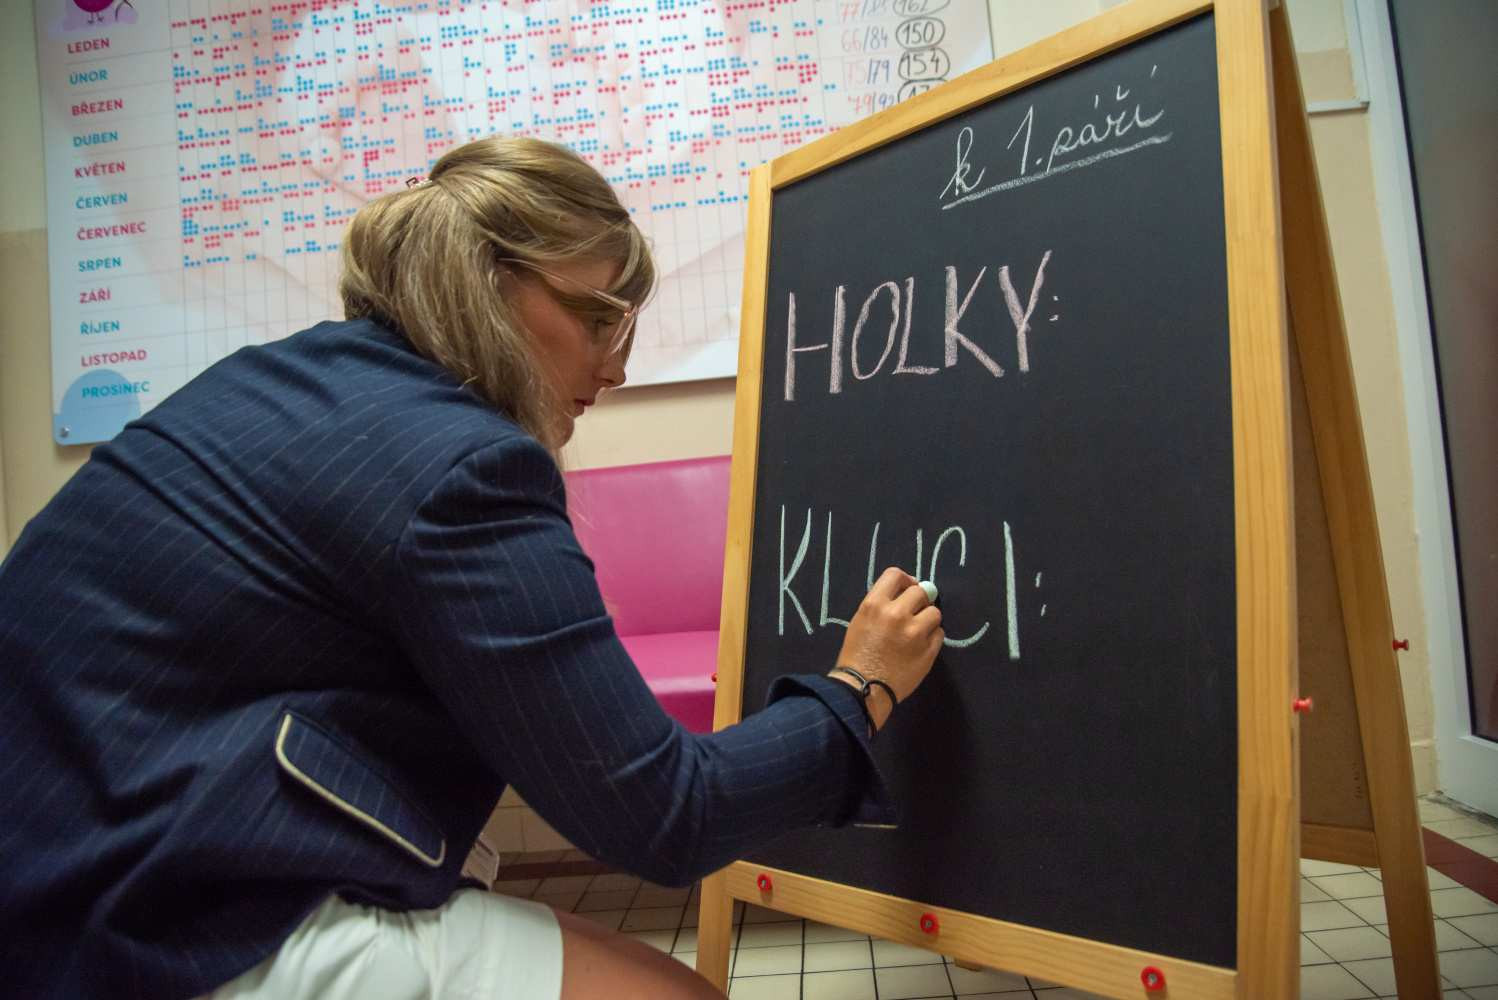 LEDEN
ÚNOR
BŘEZEN
DUBEN
KVĚTEN
ČERVEN
ČERVENEC
SRPEN
ZÁŘÍ
ŘÍJEN
LISTOPAD
PROSINEC
162
66/84 150
75/79 154
79/92
k 1. září
HOLKY:
KLUCI: